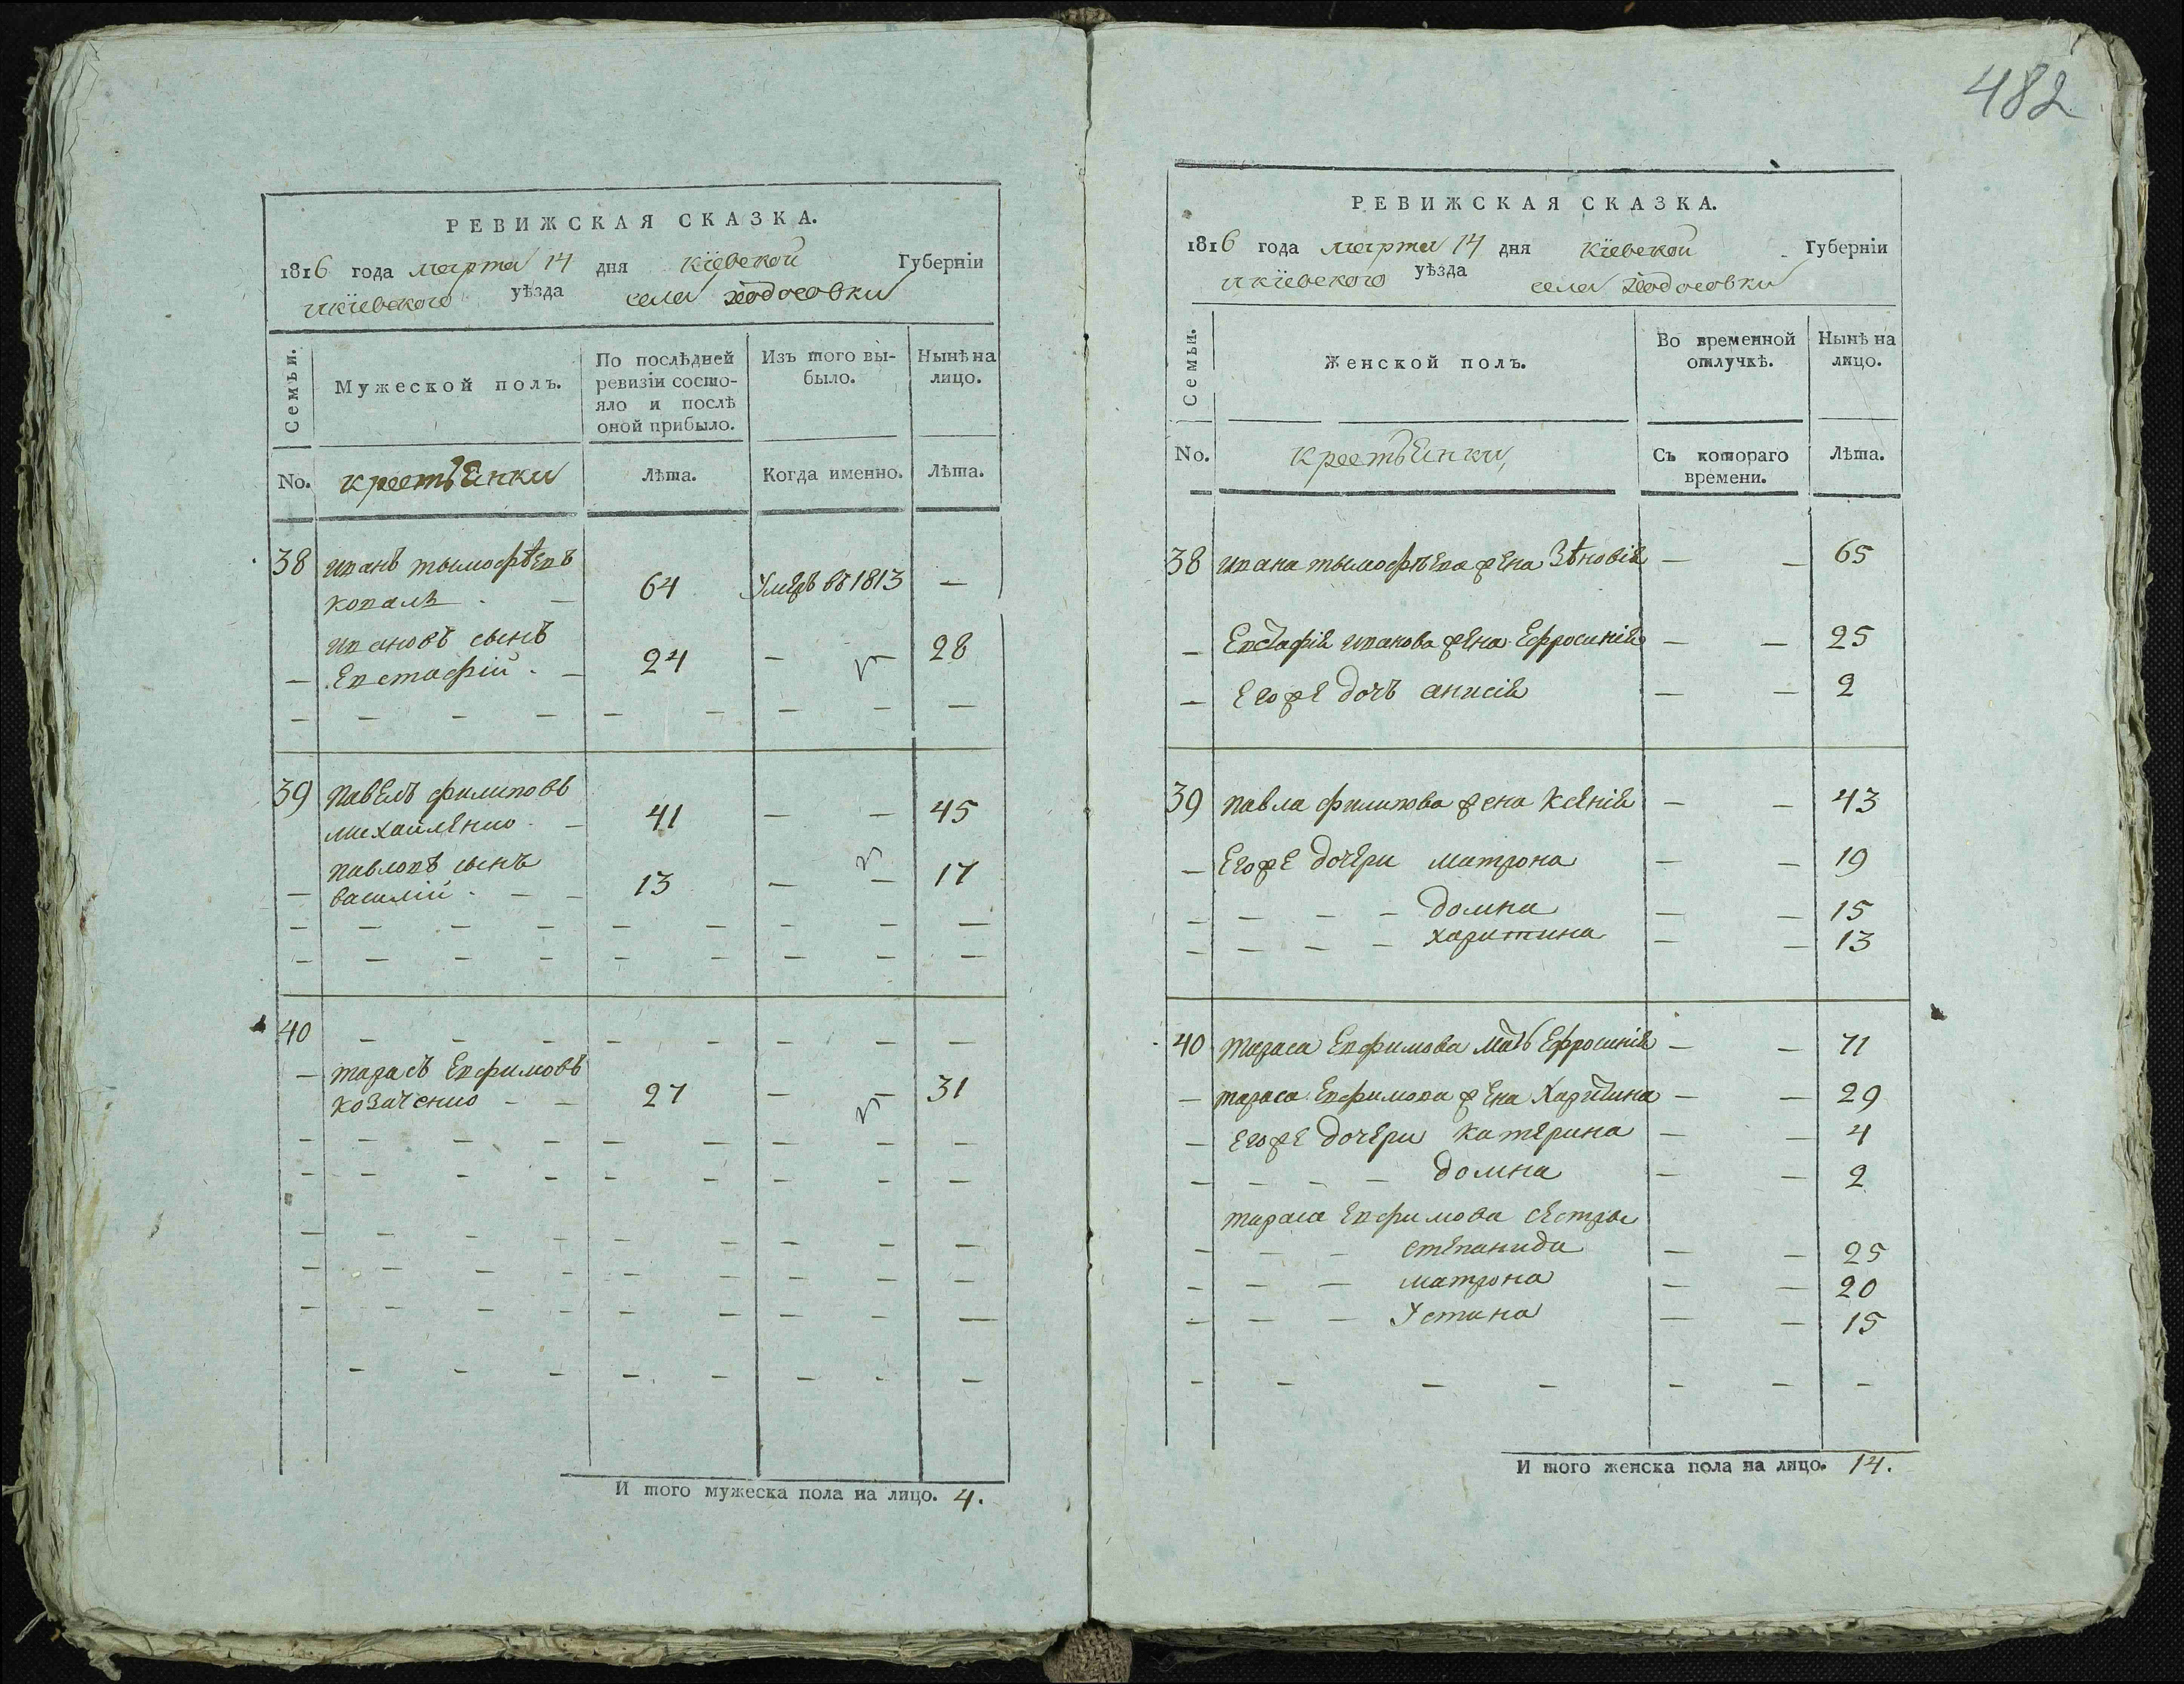 482
РЕВИЖСКАЯ СКАЗКА.
1816 года марта 14 дня Кіевской Губерніи
икіевского уѣзда села ходосовки
Семьи. Мужеской полъ. По послѣдней ревизіи состояло и послѣ оной прибыло. Изъ того выбыло. Нынѣ на лицо.
No. крестьянки Лѣта. Когда именно. Лѣта.
38 иванъ тымофѣевъ
ковалъ - 64 Умеръ въ 1813 -
ивановъ сынъ
- Евстафій - 24 - 28
39 павелъ филиповъ
михайленко - 41 - - 45
павловъ сынъ
- василій - 13 - - 17
40
- тарасъ Евфимовъ
козаченко - - 27 - - 31
И того мужеска пола на лицо. 4.
РЕВИЖСКАЯ СКАЗКА.
1816 года марта 14 дня Кіевской Губерніи
икіевского уѣзда села ходосовки
Семьи. Женской полъ. Во временной отлучкѣ. Нынѣ на лицо.
No. крестьянки Съ котораго времени. Лѣта.
38 ивана тымофѣева жена Зѣновія - - 65
- Евстафія иванова жена Ефросинія - - 25
- Егоже дочъ анисія - - 2
39 павла филипова жена Ксенія - - 43
- Егоже дочери матрона - - 19
- - - - домна - - 15
- - - - харитина - - 13
40 тараса Евфимова мать Ефросинія - - 71
- тараса Евфимова жена Харитина - - 29
- Егоже дочери катерина - - 4
- - - - домна - - 2
тараса Евфимова сестры
- - - степанида - - 25
- - - матрона - - 20
- - - Устина - - 15
И того женска пола на лицо. 14.